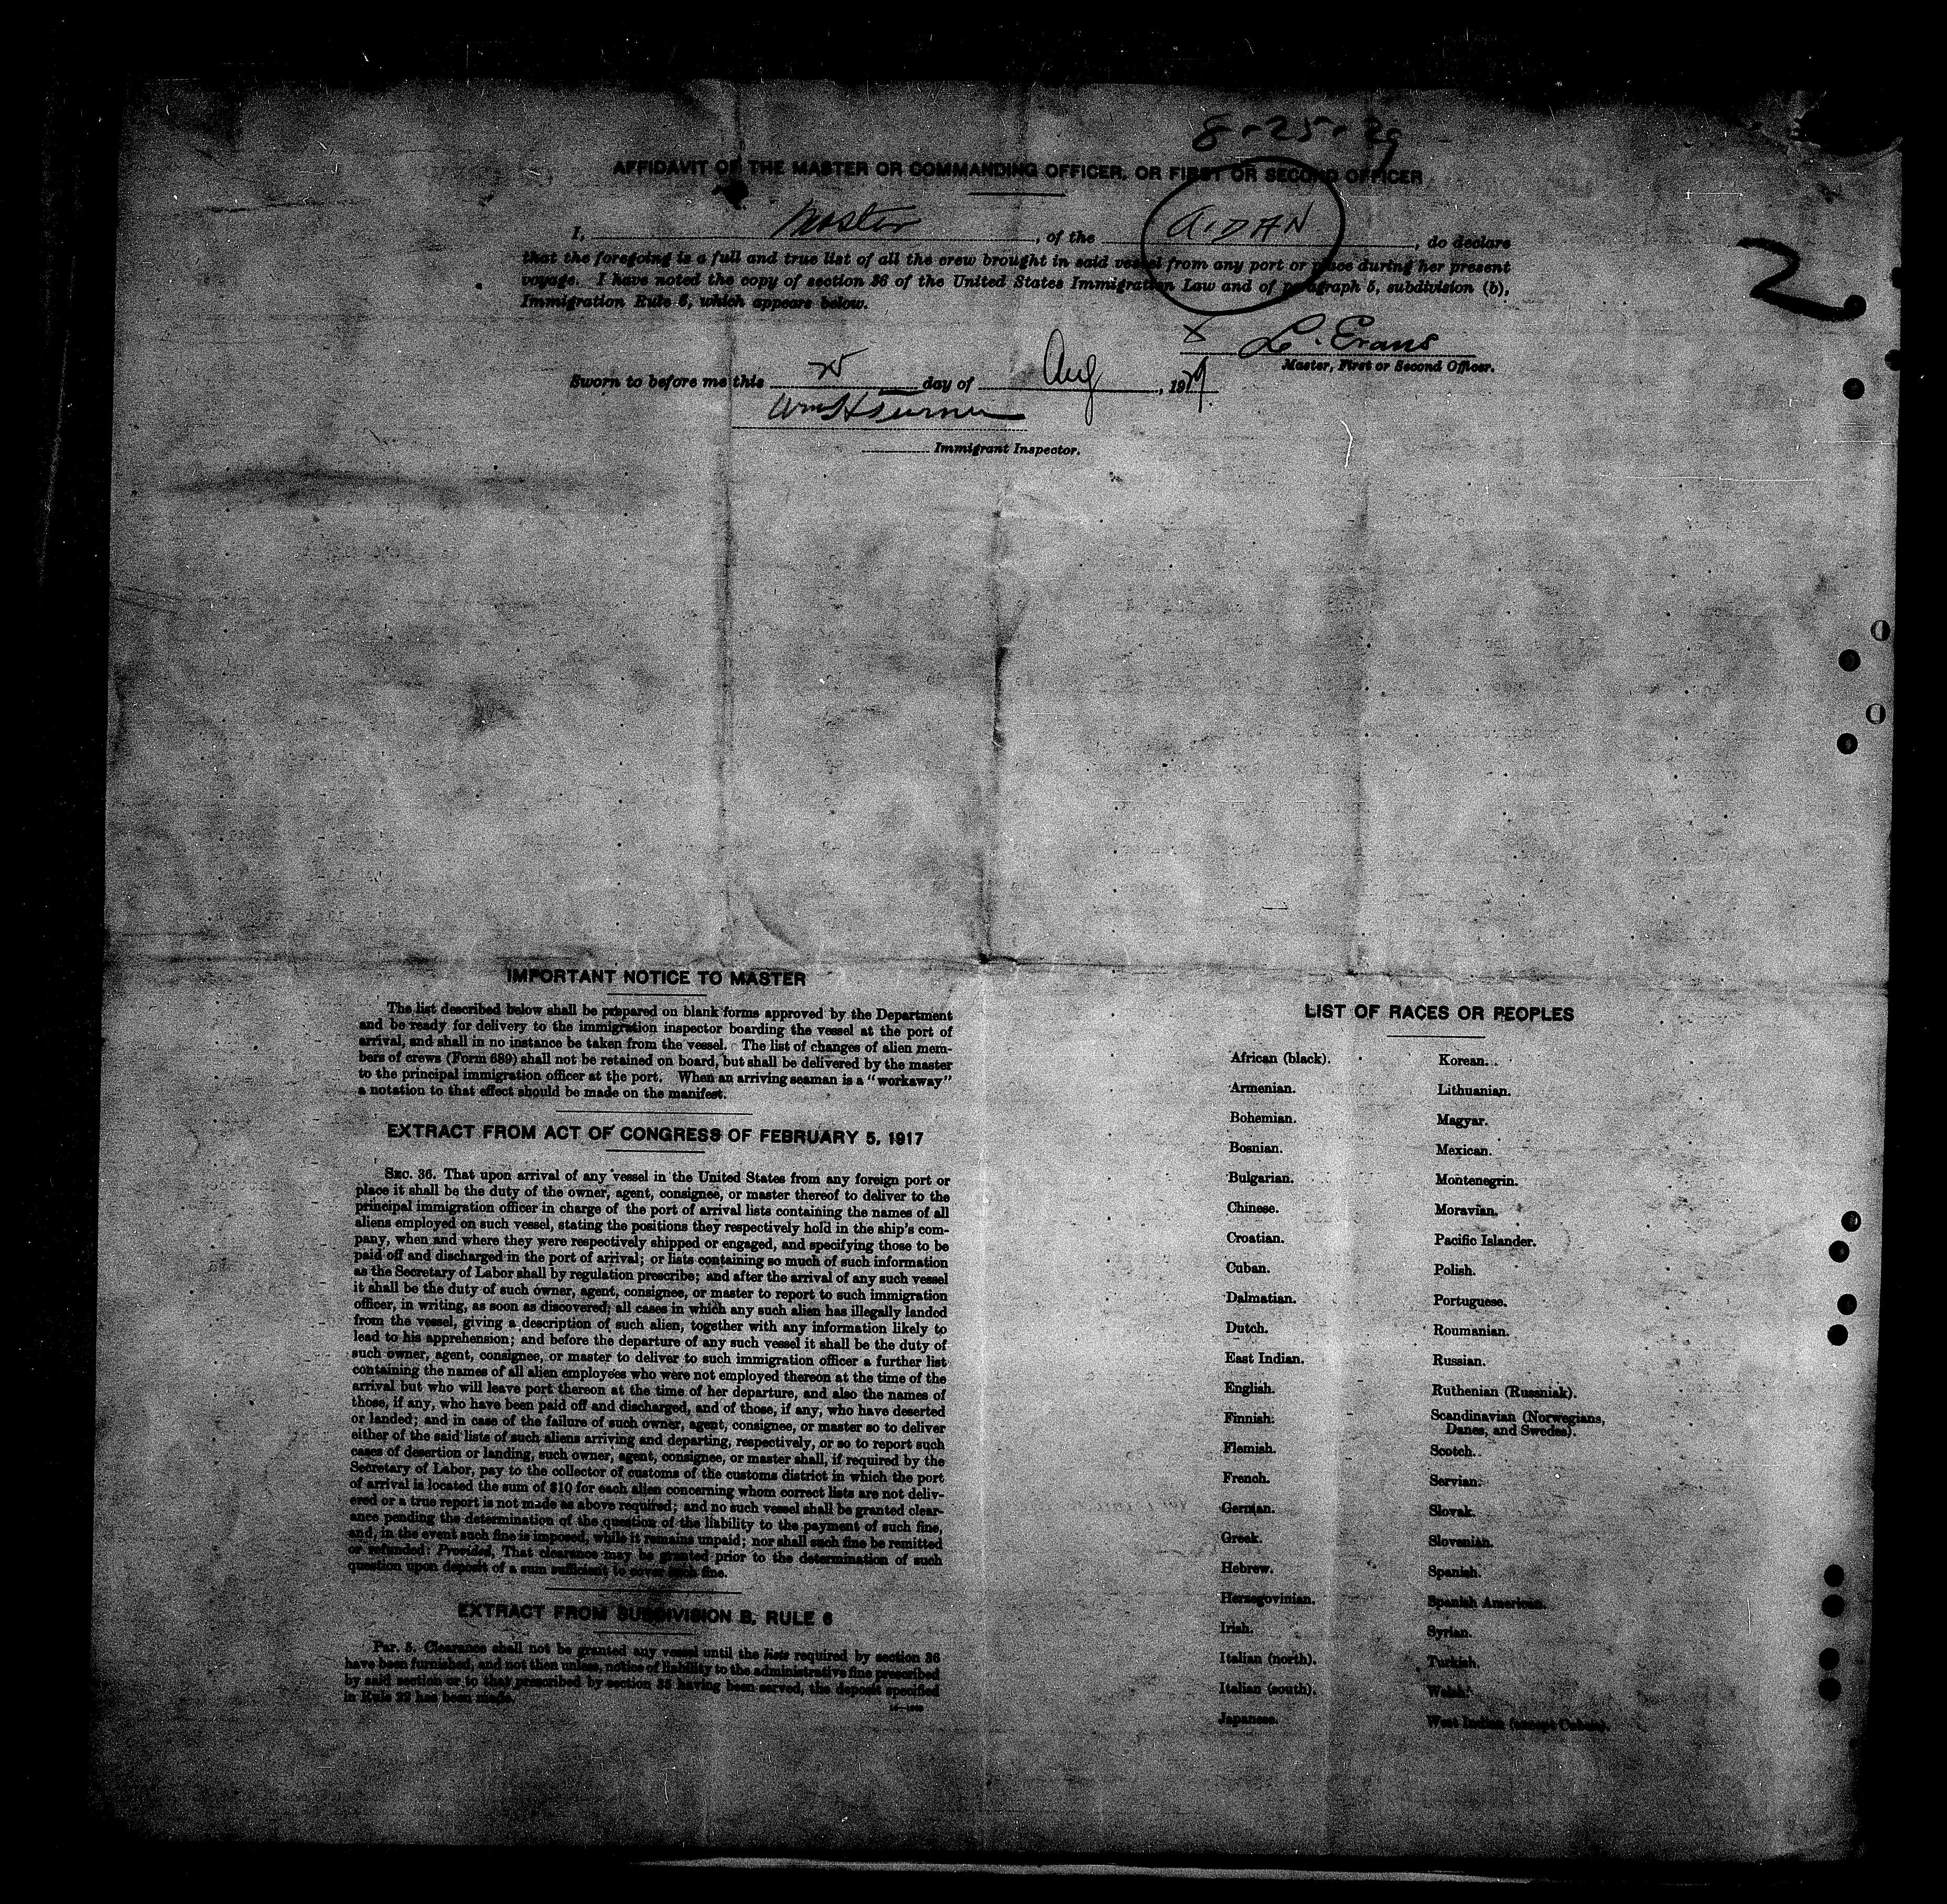 8-25-29
AFFIDAVIT OF THE MASTER OR COMMANDING OFFICER, OR FIRST OR SECOND OFFICER
I, Master, of the AIDAN, do declare
that the foregoing is a full and true list of all the crew brought in said vessel from any port or place during her present
voyage. I have noted the copy of section 36 of the United States Immigration Law and of paragraph 5, subdivision (b),
Immigration Rule 6, which appears below.
2
X L. Evans
Master, First or Second Officer.
Sworn to before me this 25 day of Aug, 1929
Wm H Turner
Immigrant Inspector.
IMPORTANT NOTICE TO MASTER
The list described below shall be prepared on blank forms approved by the Department
and be ready for delivery to the immigration inspector boarding the vessel at the port of
arrival, and shall in no instance be taken from the vessel. The list of changes of alien mem-
bers of crews (Form 689) shall not be retained on board, but shall be delivered by the master
to the principal immigration officer at the port. When an arriving seaman is a "workaway"
a notation to that effect should be made on the manifest.
EXTRACT FROM ACT OF CONGRESS OF FEBRUARY 5, 1917
SEC. 36. That upon arrival of any vessel in the United States from any foreign port or
place it shall be the duty of the owner, agent, consignee, or master thereof to deliver to the
principal immigration officer in charge of the port of arrival lists containing the names of all
aliens employed on such vessel, stating the positions they respectively hold in the ship's com-
pany, when and where they were respectively shipped or engaged, and specifying those to be
paid off and discharged in the port of arrival; or lists containing so much of such information
as the Secretary of Labor shall by regulation prescribe; and after the arrival of any such vessel
it shall be the duty of such owner, agent, consignee, or master to report to such immigration
officer, in writing, as soon as discovered, all cases in which any such alien has illegally landed
from the vessel, giving a description of such alien, together with any information likely to
lead to his apprehension; and before the departure of any such vessel it shall be the duty of
such owner, agent, consignee, or master to deliver to such immigration officer a further list
containing the names of all alien employees who were not employed thereon at the time of the
arrival but who will leave port thereon at the time of her departure, and also the names of
those, if any, who have been paid off and discharged, and of those, if any, who have deserted
or landed; and in case of the failure of such owner, agent, consignee, or master so to deliver
either of the said lists of such aliens arriving and departing, respectively, or so to report such
cases of desertion or landing, such owner, agent, consignee, or master shall, if required by the
Secretary of Labor, pay to the collector of customs of the customs district in which the port
of arrival is located the sum of $10 for each alien concerning whom correct lists are not deliv-
ered or a true report is not made as above required; and no such vessel shall be granted clear-
ance pending the determination of the question of the liability to the payment of such fine,
and, in the event such fine is imposed, while it remains unpaid; nor shall such fine be remitted
or refunded: Provided, That clearance may be granted prior to the determination of such
question upon deposit of a sum sufficient to cover such fine.
EXTRACT FROM SUBDIVISION B, RULE 6
Par. 5. Clearance shall not be granted any vessel until the lists required by section 36
have been furnished, and not then unless, notice of liability to the administrative fine prescribed
by said section or to that prescribed by section 35 having been served, the deposit specified
in Rule 22 has been made.
LIST OF RACES OR PEOPLES
African (black).
Armenian.
Bohemian.
Bosnian.
Bulgarian.
Chinese.
Croatian.
Cuban.
Dalmatian.
Dutch.
East Indian.
English.
Finnish.
Flemish.
French.
German.
Greek.
Hebrew.
Herzegovinian.
Irish.
Italian (north).
Italian (south).
Japanese.
Korean.
Lithuanian.
Magyar.
Mexican.
Montenegrin.
Moravian.
Pacific Islander.
Polish.
Portuguese.
Roumanian.
Russian.
Ruthenian (Russniak).
Scandinavian (Norwegians,
Danes, and Swedes).
Scotch.
Servian.
Slovak.
Slovenian.
Spanish.
Spanish American.
Syrian.
Turkish.
Welsh.
West Indian (except Cuban).